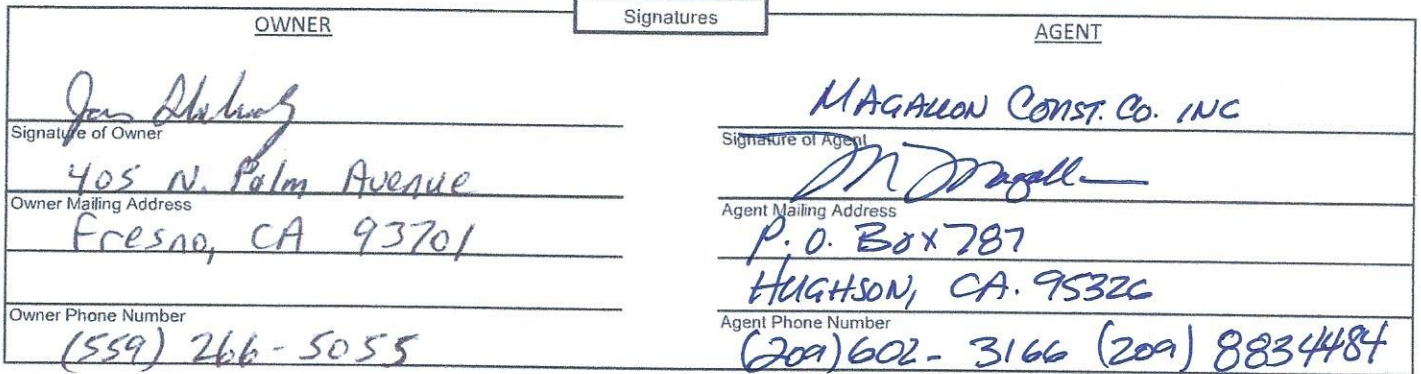 Signatures
OWNER
Signature of Owner
405 N. Palm Avenue
Owner Mailing Address
Fresno, CA 93701
Owner Phone Number
(559) 266-5055
AGENT
MAGALLON CONST. CO. INC
Signature of Agent
M Magallon
Agent Mailing Address
P.O. Box 787
HUGHSON, CA. 95326
Agent Phone Number
(209) 602-3166 (209) 8834484